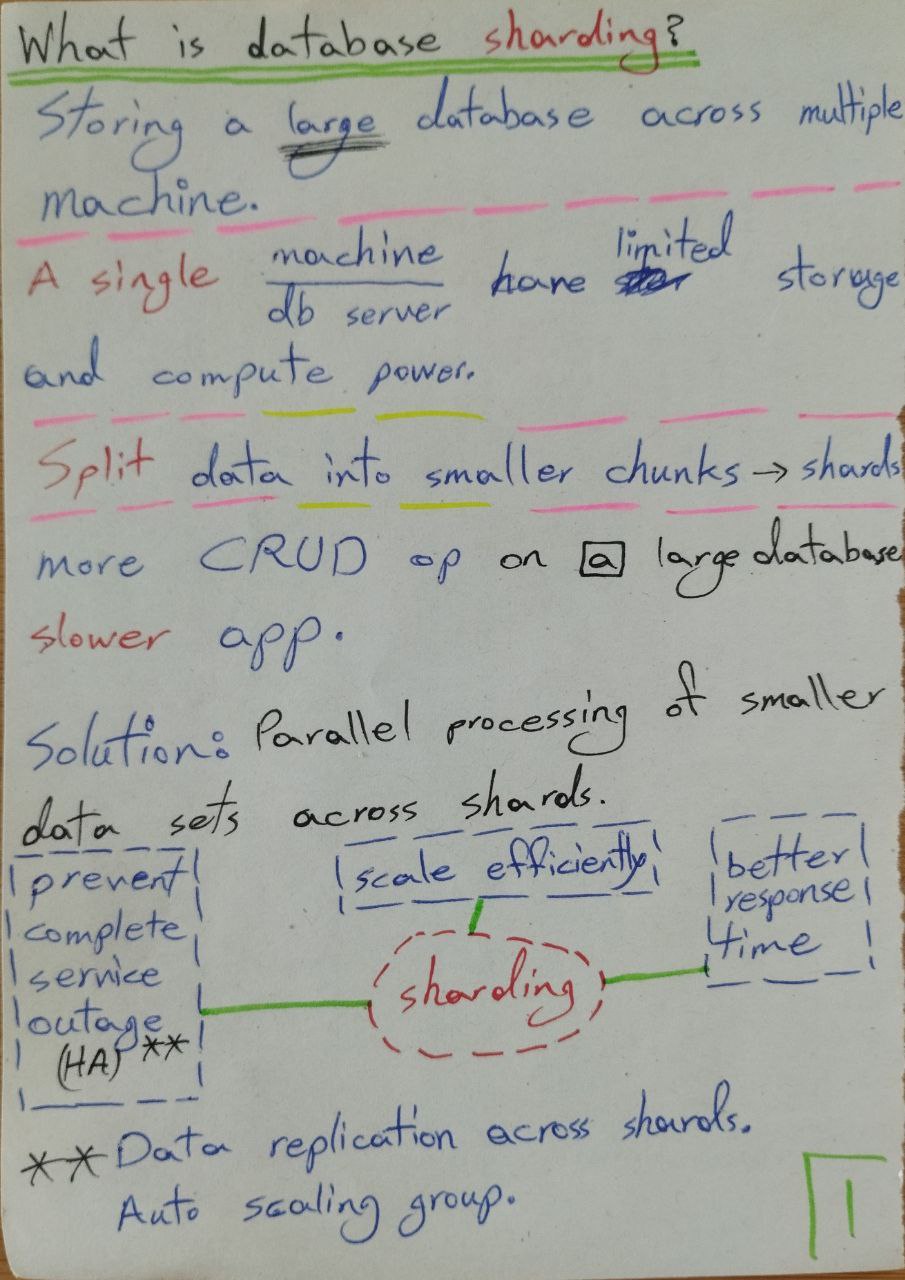 What is database sharding?
Storing a large database across multiple
machine.
A single machine have limited storage
db server
and compute power.
Split data into smaller chunks → shards
more CRUD op on a large database
slower app.
Solution: Parallel processing of smaller
data sets across shards.
prevent
complete
service
outage
(HA) **
scale efficiently
better
response
time
sharding
** Data replication across shards.
Auto scaling group.
1